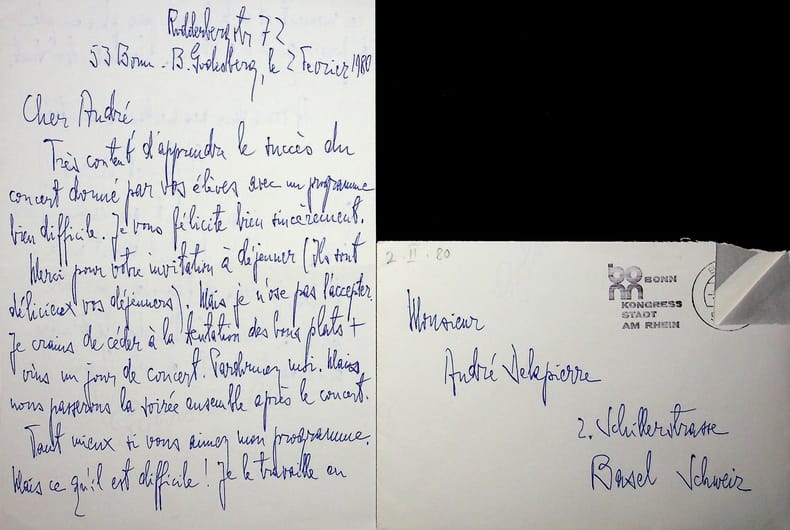 Rodderbergstr 72
53 Bonn - B. Godesberg, le 2 Fevrier 1980
Cher André
Très content d'apprendre le succès du
concert donné par vos élèves avec un programme
bien difficile. Je vous félicite bien sincèrement.
Merci pour votre invitation à déjeuner (ils sont
délicieux vos déjeuners). Mais je n'ose pas l'accepter.
Je crains de céder à la tentation des bons plats +
vins un jour de concert. Pardonnez moi. Mais
nous passerons la soirée ensemble après le concert.
Tant mieux si vous aimez mon programme.
Mais ce qu'il est difficile! Je le travaille en
2 . II . 80
bonn BONN
KONGRESS
STADT
AM RHEIN
Monsieur
André Delapierre
2. Schillerstrasse
Basel Schweiz